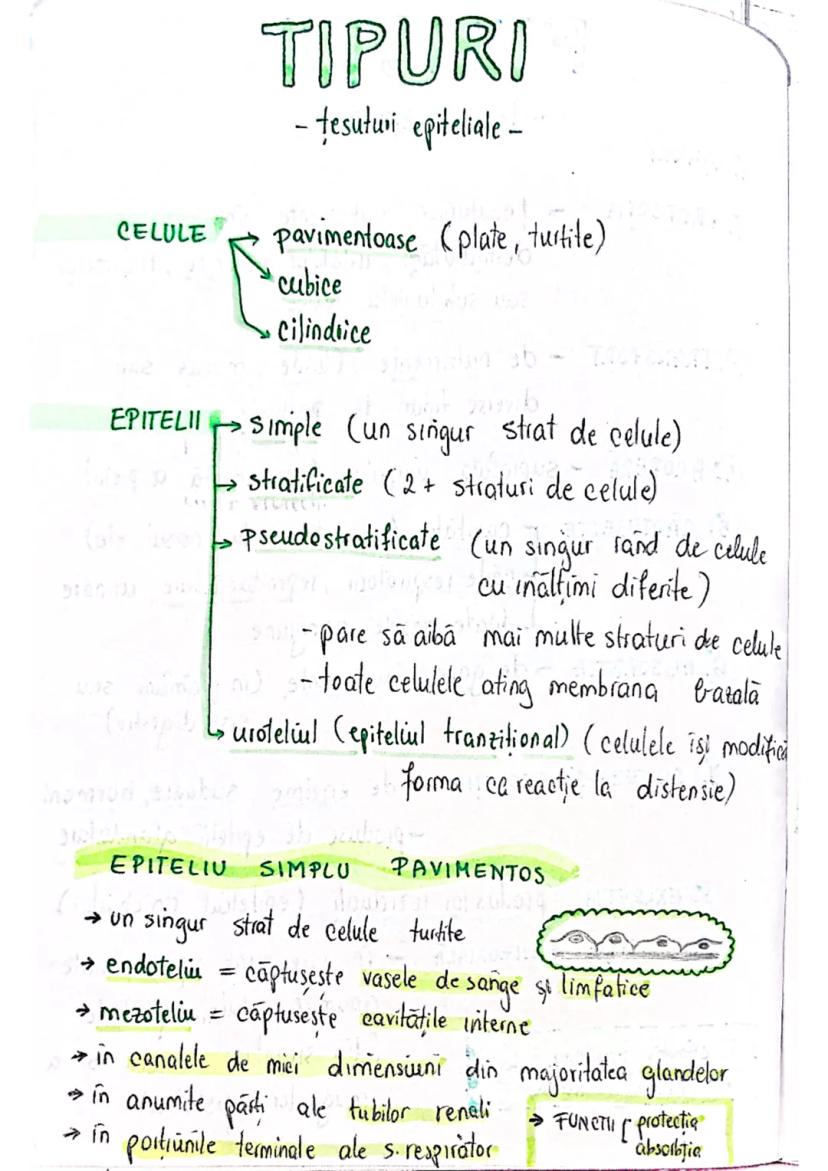 TIPURI
- țesuturi epiteliale -
CELULE → pavimentoase (plate, turtite)
cubice
cilindrice
EPITELII → simple (un singur strat de celule)
→ stratificate (2+ straturi de celule)
→ pseudostratificate (un singur rând de celule
cu înălțimi diferite)
- pare să aibă mai multe straturi de celule
- toate celulele ating membrana bazală
→ uroteliul (epiteliul tranzițional) (celulele își modifică
forma ca reacție la distensie)
EPITELIU SIMPLU PAVIMENTOS
→ un singur strat de celule turtite
→ endoteliu = căptușește vasele de sânge și limfatice
→ mezoteliu = căptușește cavitățile interne
→ în canalele de mici dimensiuni din majoritatea glandelor
→ în anumite părți ale tubilor renali
→ în porțiunile terminale ale s. respirator
→ FUNCȚII [ protecția
absorbția